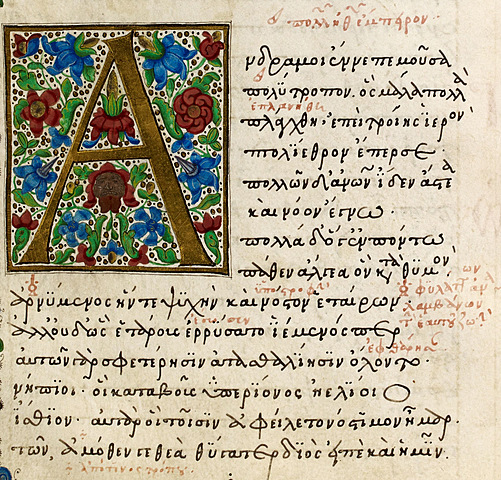 Ἀνδρα μοι ἔννεπε μοῦσα
πολύτροπον· ὃς μάλα πολλὰ
ἐπλανήθη
πλάγχθη· ἐπεὶ τροίης ἱερὸν
πτολίεθρον ἔπερσε·
πολλῶν δ' ἀνων ἴδεν ἄστεα
καὶ νόον ἔγνω·
πολλὰ δ' ὅγ' ἐν πόντω
πάθεν ἄλγεα ὃν κατὰ θυμὸν
ἀρνύμενος ἥν τε ψυχὴν καὶ νόστον ἑταίρων
λαμβάνων
ἔσωσεν
ἀλλ' οὐδ' ὣς ἑτάρους ἐρρύσατο ἱέμενός περ
αὐτῶν γὰρ σφετέρησιν ἀτασθαλίησιν ὄλοντο
νήπϊοι· οἳ κατὰ βοῦς ὑπερίονος ἠελίοιο
ἤσθιον· αὐτὰρ ὁ τοῖσϊν ἀφείλετο νόστιμον ἦμαρ·
τῶν ἁμόθεν γε θεὰ θύγατερ διὸς εἰπὲ καὶ ἡμῖν.
ἀπό τινος τρόπου